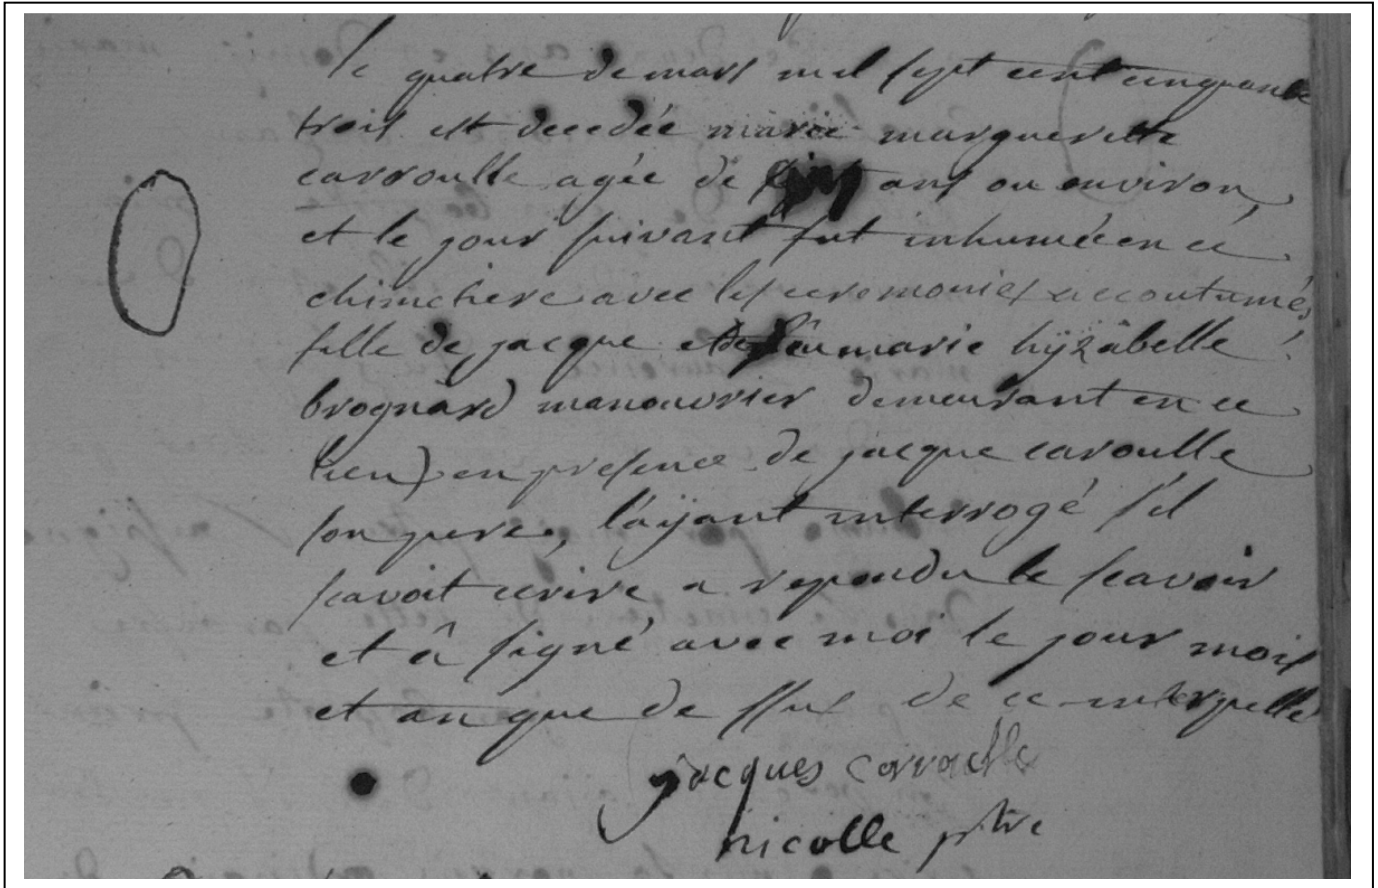 le quatre de mars mil sept cent cinquante
trois est decedée marie marguerette
carroulle agée de ans ou environ
et le jour suivant fut inhumée en ce
chimetiere avec les ceremonies accoutumés
fille de jacque et de feu marie hÿzabelle
brognard manouvrier demeurant en ce
lieu) en presence de jacque caroulle
son pere, l'aÿant interrogé s'il
scavoit ecrire a repondu le scavoir
et â signé avec moi le jour mois
et an que de ssus de ce interpellé
jacques carroulle
nicolle ptre